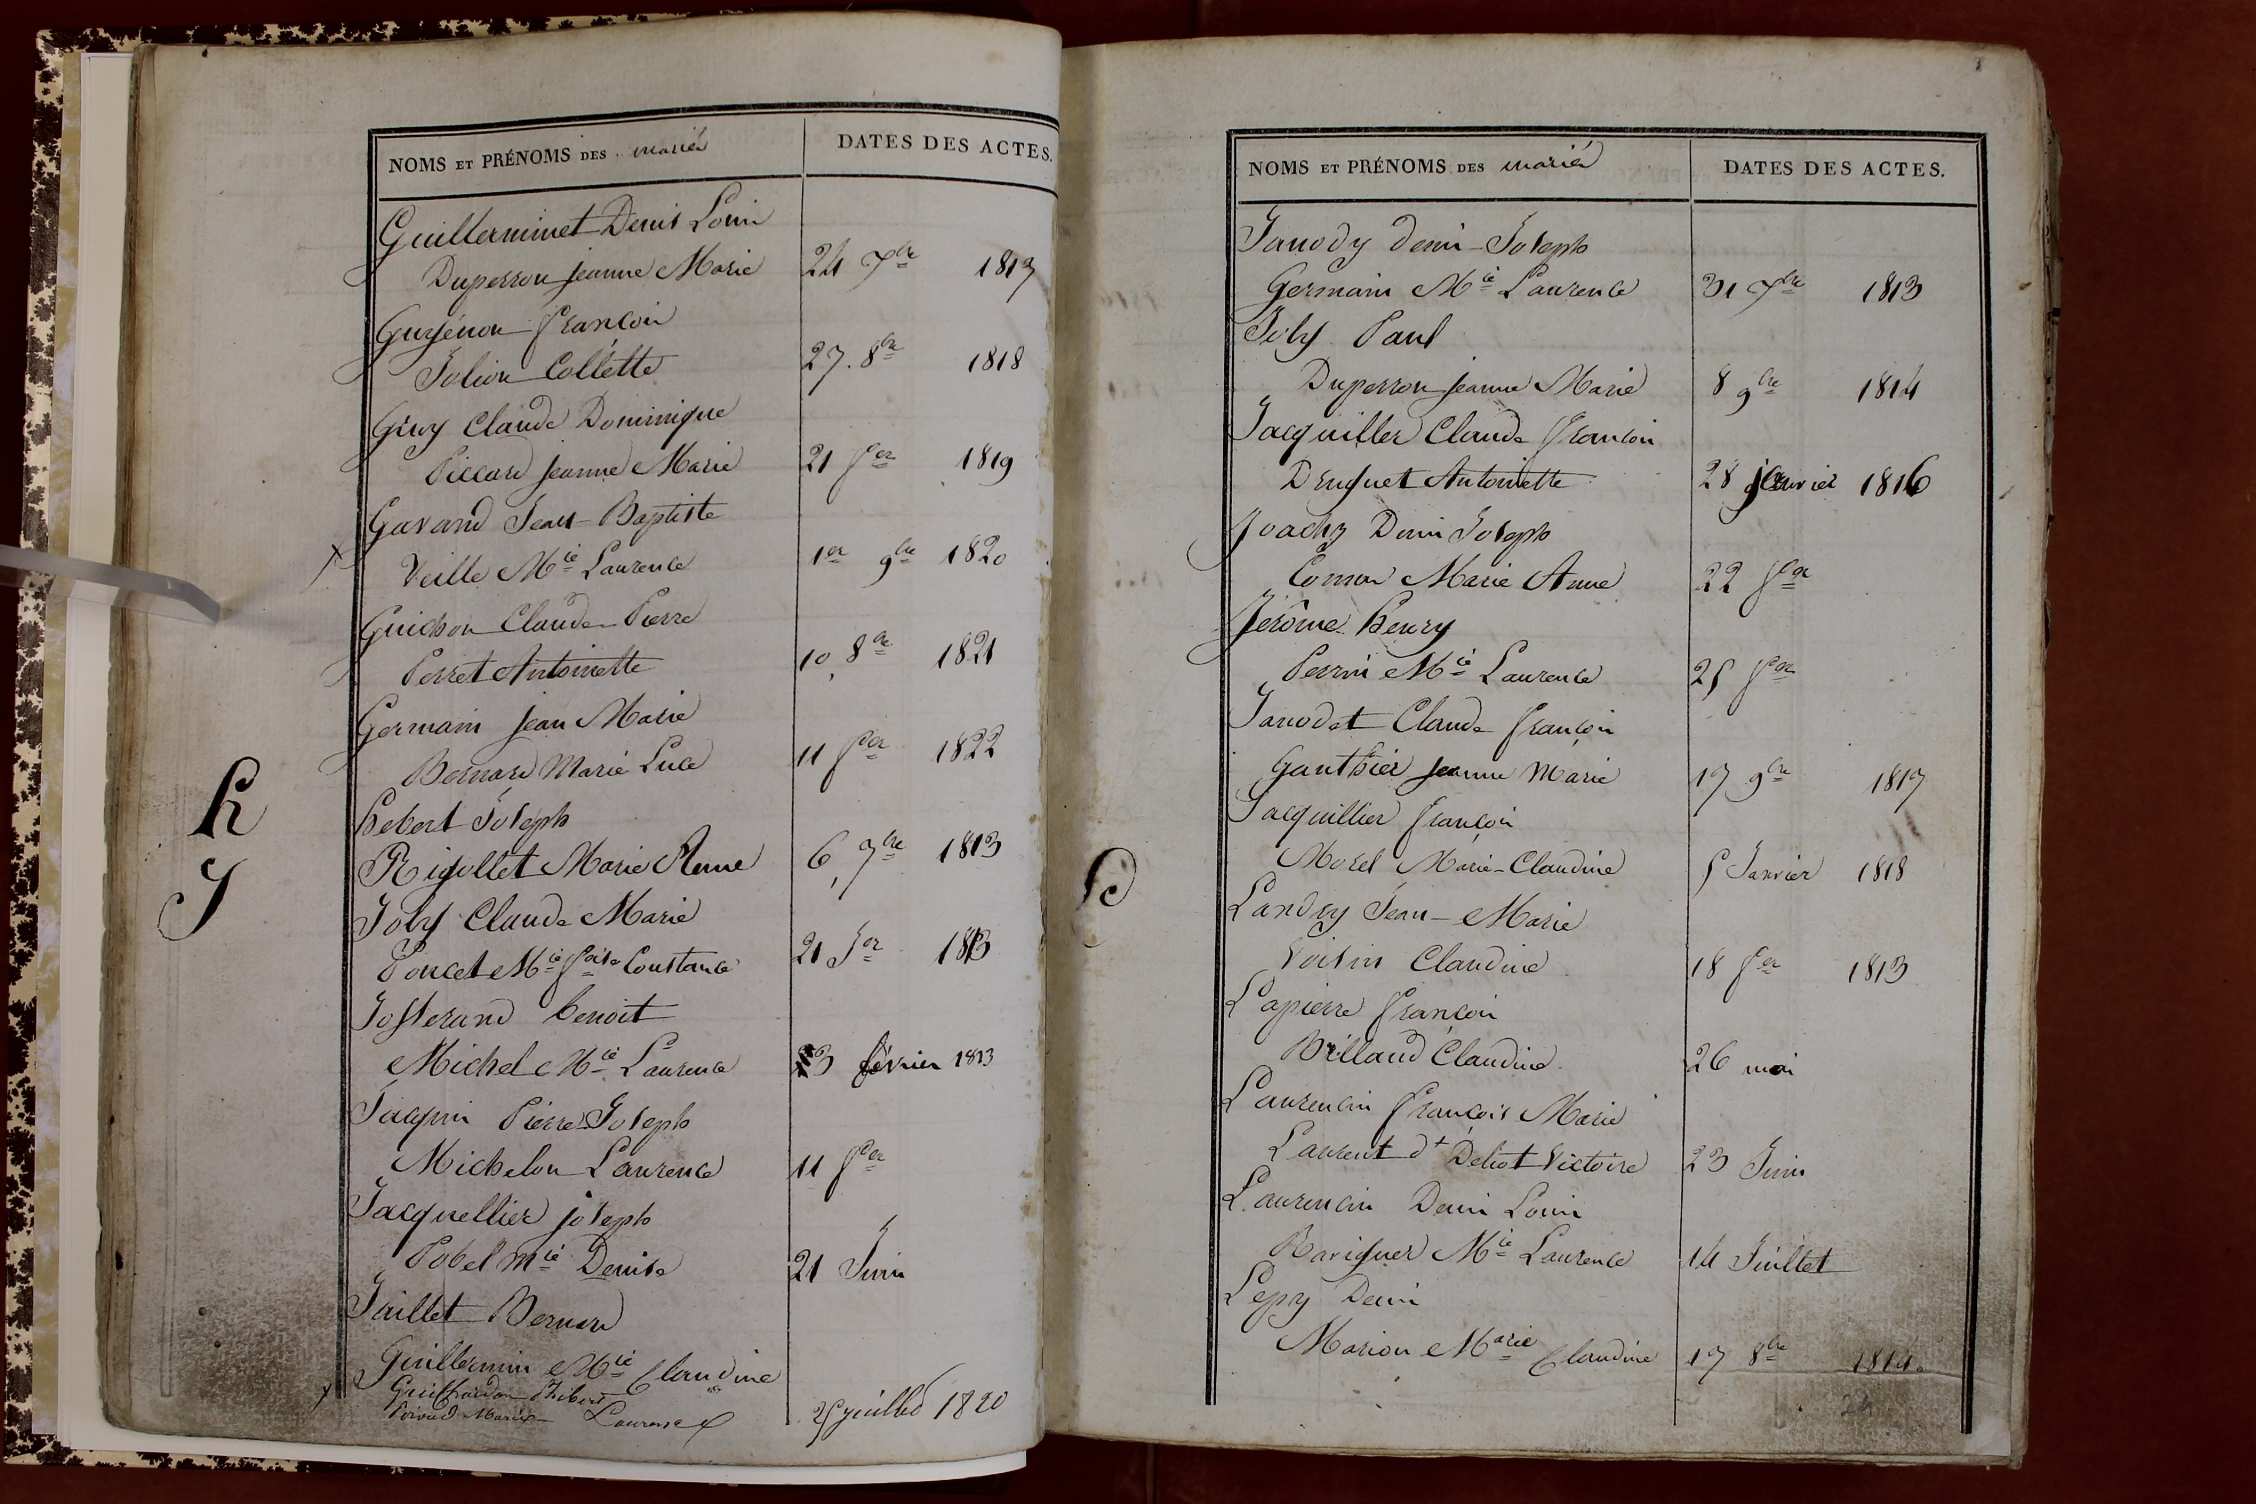 NOMS ET PRÉNOMS DES mariés DATES DES ACTES.
Guillerminet Denis Louis
Duperron jeanne Marie 24 7bre 1817
Guyénon François
Jolion Collette 27. 8bre 1818
Guy Claude Dominique
Piccard jeanne Marie 21 fer 1819
Gavand Jean-Baptiste
Veille Mie Laurence 1er 9bre 1820
Guichon Claude Pierre
Perret Antoinette 10, 8bre 1821
Germain jean Marie
Bernard Marie Luce 11 fer 1822
h
hebert Joseph
Rigollet Marie Anne 6, 7bre 1813
J
Joly Claude Marie
Poncet Mie foise Constance 21 Jer 1813
Josserand benoit
Michel Mie Laurence 23 février 1813
Jacquin Pierre Joseph
Michelon Laurence 11 fer
Jacquellier joseph
Pobel mie Denise 21 Juin
Jaillet Bernard
Guillermin Mie Claudine
Guichardon Philibert
Poivud Marie Laurence 25 juillet 1820
NOMS ET PRÉNOMS DES mariés DATES DES ACTES.
Janody denis-Joseph
Germain Mie Laurence 31 7bre 1813
Joly Paul
Duperron jeanne Marie 8 9bre 1814
Jacquiller Claude françois
Druguet Antoinette 28 janvier 1816
Joachy Denis Joseph
Comon Marie Anne 22 fer
Jérôme henry
Perrin Mie Laurence 25 fer
Janodet Claude françois
Gauthier jeanne Marie 17 9bre 1817
Jacquillier françois
Morel Marie-Claudine 5 Janvier 1818
L
Landry Jean-Marie
Voisin Claudine 18 fer 1813
Lapierre françois
Billaud Claudine 26 mai
Laurencin françois Marie
Laurent dt Deliot Victoire 23 Juin
Laurencin Denis Louis
Raviguer Mie Laurence 14 Juillet
Lepy Denis
Marion Marie Claudine 17 8bre 1814
24